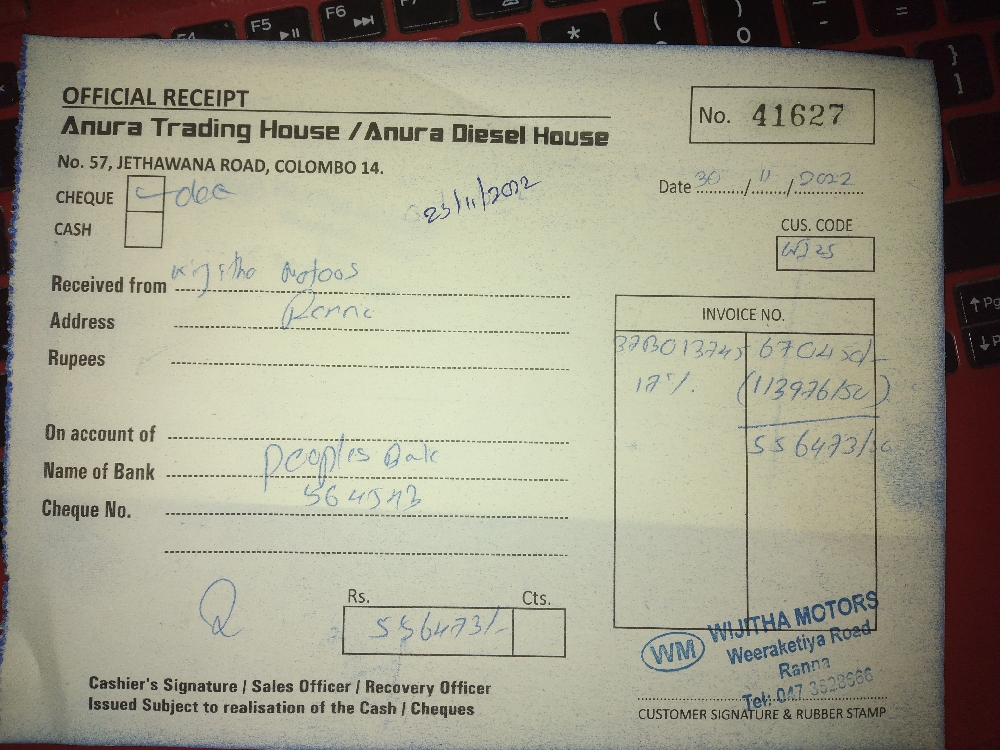 F5 F6
OFFICIAL RECEIPT
No. 41627
Anura Trading House / Anura Diesel House
No. 57, JETHAWANA ROAD, COLOMBO 14.
Date 30/11/2022
23/11/2022
CHEQUE
CASH
CUS. CODE
WJ25
Received from
Address Ranna
Rupees
INVOICE NO.
670450/-
17%. (113976/50)
556473/50
On account of
Name of Bank Peoples Bank
Cheque No. 564543
Rs. Cts.
556473/-
WM WIJITHA MOTORS
Weeraketiya Road
Ranna
Tel: 047 3628666
Cashier's Signature / Sales Officer / Recovery Officer
Issued Subject to realisation of the Cash / Cheques
CUSTOMER SIGNATURE & RUBBER STAMP